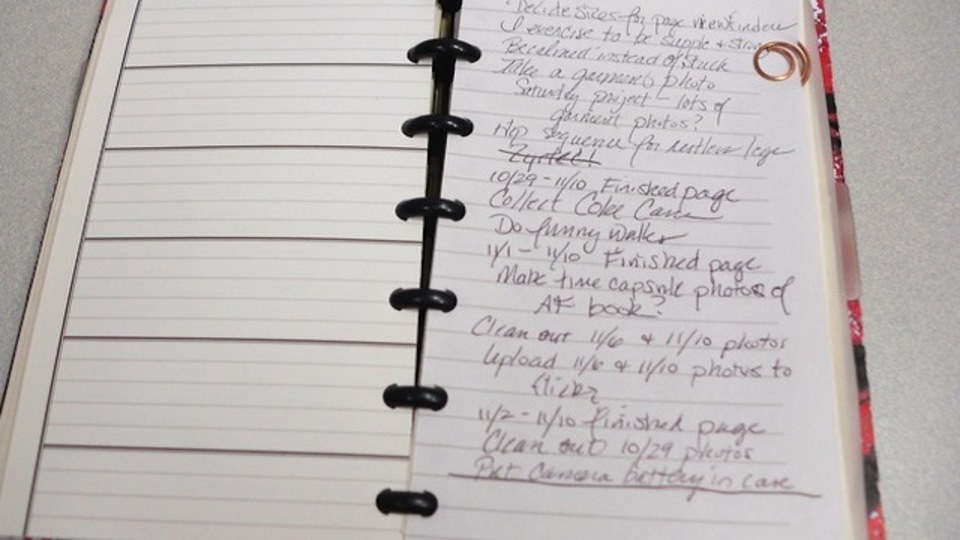 Decide sizes for page viewfinder
I exercise to be supple & strong
Becalmed instead of stuck
Take a garment photo
Saturday project - lots of
garment photos?
Hip sequence for restless legs
10/29 - 11/10 Finished page
Collect Coke Cans
Do funny walks
11/1 - 11/10 Finished page
Make time capsule photos of
AF book?
Clean out 11/6 & 11/10 photos
Upload 11/6 & 11/10 photos to
flickr
11/2 - 11/10 finished page
Clean out 10/29 photos
Put camera battery in case